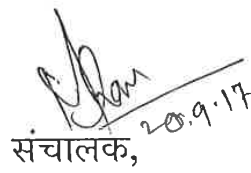 20.9.17
संचालक,